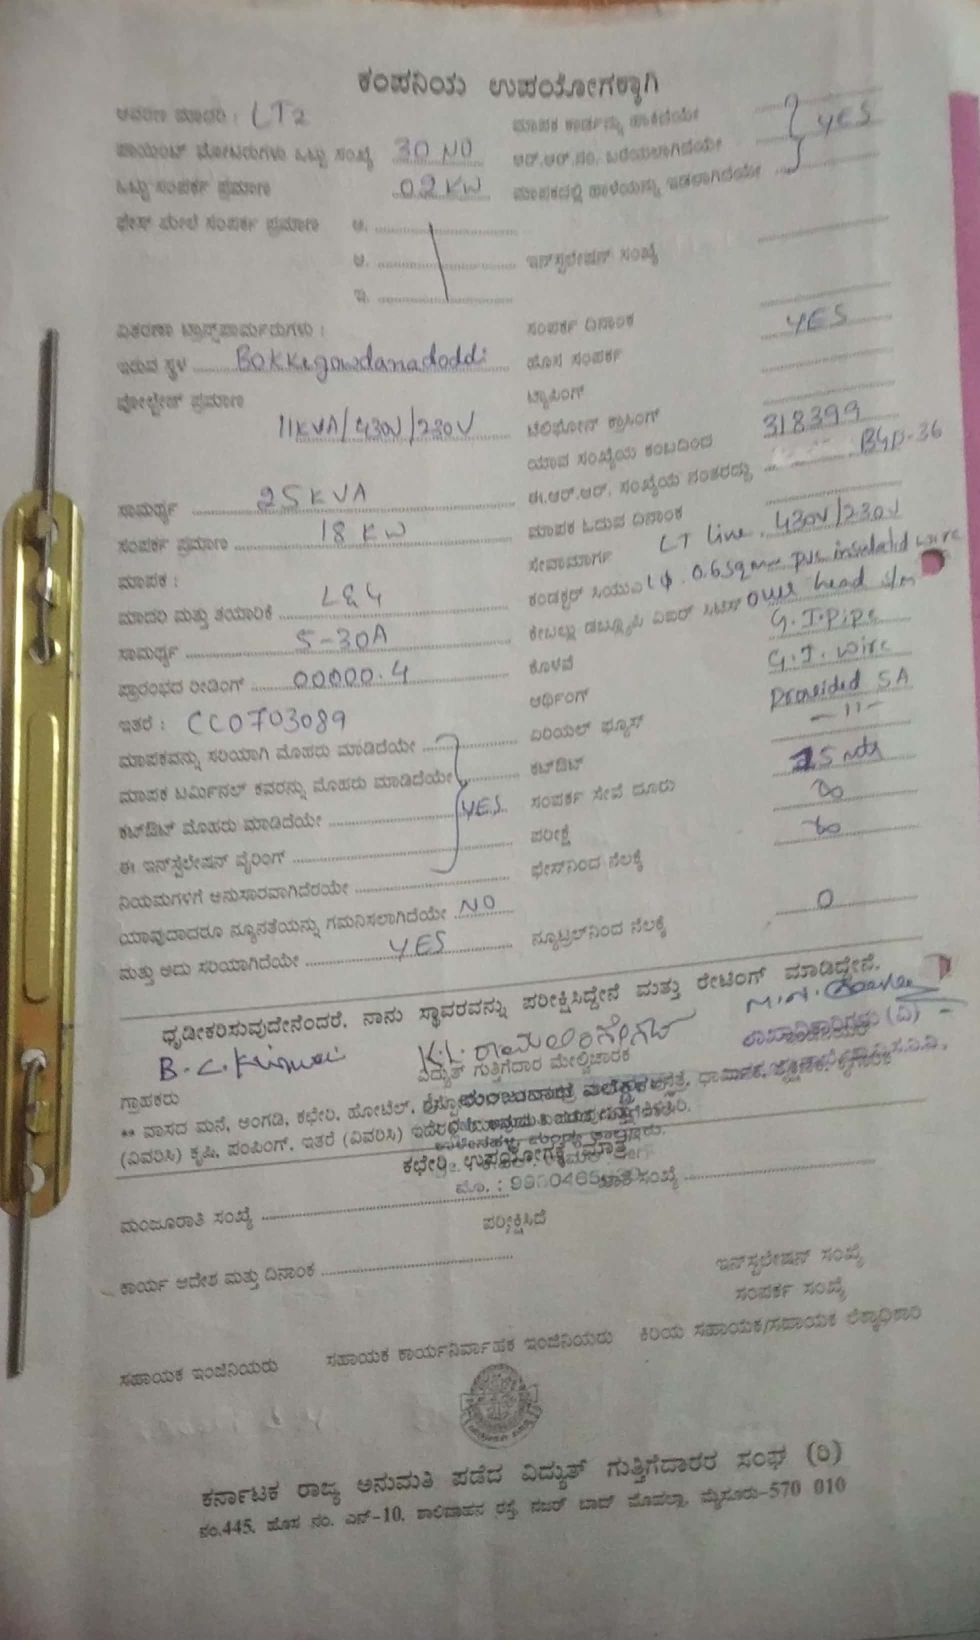 ಕಂಪನಿಯ ಉಪಯೋಗಕ್ಕಾಗಿ
ಆವರಣ ಮಾದರಿ : LT2
ಪಾಯಿಂಟ್ ಮೋಟರುಗಳು ಒಟ್ಟು ಸಂಖ್ಯೆ 30 NO
ಒಟ್ಟು ಸಂಪರ್ಕ ಪ್ರಮಾಣ 02 KW
ಫೇಸ್ ಮೇಲೆ ಸಂಪರ್ಕ ಪ್ರಮಾಣ ಅ.
ಆ.
ಇ.
ವಿತರಣಾ ಟ್ರಾನ್ಸ್‌ಫಾರ್ಮರುಗಳು :
ಇರುವ ಸ್ಥಳ Bokkegowdanadoddi
ವೋಲ್ಟೇಜ್ ಪ್ರಮಾಣ
11KVA/430V/230V
ಸಾಮರ್ಥ್ಯ 25KVA
ಸಂಪರ್ಕ ಪ್ರಮಾಣ 18 KW
ಮಾಪಕ :
ಮಾದರಿ ಮತ್ತು ತಯಾರಿಕೆ
ಸಾಮರ್ಥ್ಯ 5-30A
ಪ್ರಾರಂಭದ ರೀಡಿಂಗ್ 00000.4
ಇತರೆ : CC0703089
ಮಾಪಕವನ್ನು ಸರಿಯಾಗಿ ಮೊಹರು ಮಾಡಿದೆಯೇ
ಮಾಪಕ ಟರ್ಮಿನಲ್ ಕವರನ್ನು ಮೊಹರು ಮಾಡಿದೆಯೇ
ಕಟ್‌ಔಟ್ ಮೊಹರು ಮಾಡಿದೆಯೇ YES
ಈ ಇನ್‌ಸ್ಟಲೇಷನ್ ವೈರಿಂಗ್
ನಿಯಮಗಳಿಗೆ ಅನುಸಾರವಾಗಿದೆರಯೇ
ಯಾವುದಾದರೂ ನ್ಯೂನತೆಯನ್ನು ಗಮನಿಸಲಾಗಿದೆಯೇ NO
ಮತ್ತು ಅದು ಸರಿಯಾಗಿದೆಯೇ YES
ಮಾಪಕ ಕಾರ್ಡನ್ನು ಹಾಕಿದೆಯೇ
ಆರ್.ಆರ್.ನಂ. ಬರೆಯಲಾಗಿದೆಯೇ YES
ಮಾಪಕದಲ್ಲಿ ಹಾಳೆಯನ್ನು ಇಡಲಾಗಿದೆಯೇ
ಇನ್‌ಸ್ಟಲೇಷನ್ ಸಂಖ್ಯೆ
ಸಂಪರ್ಕ ದಿನಾಂಕ
ಹೊಸ ಸಂಪರ್ಕ YES
ಟ್ಯಾಪಿಂಗ್
ಟೆಲಿಫೋನ್ ಕ್ರಾಸಿಂಗ್
ಯಾವ ಸಂಖ್ಯೆಯ ಕಂಬದಿಂದ 318399
ಈ.ಆರ್.ಆರ್. ಸಂಖ್ಯೆಯ ನಂತರದ್ದು BGD-36
ಮಾಪಕ ಓದುವ ದಿನಾಂಕ
ಸೇವಾಮಾರ್ಗ LT line. 430V/230V
ಕಂಡಕ್ಟರ್ 1ϕ. 0.6sqmm pvc insulated wire
ಕೇಬಲ್ಲು Over head s/m
ಕೊಳವೆ G.I.Pipe
ಆರ್ಥಿಂಗ್ G.I. wire
ಏರಿಯಲ್ ಫ್ಯೂಸ್ Provided 5A
ಕಟ್‌ಔಟ್ — 11 —
ಸಂಪರ್ಕ ಸೇವೆ ದೂರು 25 mts
ಪರೀಕ್ಷೆ ∞
ಫೇಸ್‌ನಿಂದ ನೆಲಕ್ಕೆ ∞
ನ್ಯೂಟ್ರಲ್‌ನಿಂದ ನೆಲಕ್ಕೆ 0
ಧೃಡೀಕರಿಸುವುದೇನೆಂದರೆ, ನಾನು ಸ್ಥಾವರವನ್ನು ಪರೀಕ್ಷಿಸಿದ್ದೇನೆ ಮತ್ತು ರೇಟಿಂಗ್ ಮಾಡಿದ್ದೇನೆ.
ಗ್ರಾಹಕರು
ವಿದ್ಯುತ್ ಗುತ್ತಿಗೆದಾರ ಮೇಲ್ವಿಚಾರಕ
** ವಾಸದ ಮನೆ, ಅಂಗಡಿ, ಕಛೇರಿ, ಹೋಟೆಲ್,
(ವಿವರಿಸಿ) ಕೃಷಿ, ಪಂಪಿಂಗ್, ಇತರೆ (ವಿವರಿಸಿ)
ಕಛೇರಿ ಉಪಯೋಗಕ್ಕೆ ಮಾತ್ರ
ಮಂಜೂರಾತಿ ಸಂಖ್ಯೆ
ಪರೀಕ್ಷಿಸಿದೆ
ಕಾರ್ಯ ಆದೇಶ ಮತ್ತು ದಿನಾಂಕ
ಇನ್‌ಸ್ಟಲೇಷನ್ ಸಂಖ್ಯೆ
ಸಂಪರ್ಕ ಸಂಖ್ಯೆ
ಸಹಾಯಕ ಇಂಜಿನಿಯರು ಸಹಾಯಕ ಕಾರ್ಯನಿರ್ವಾಹಕ ಇಂಜಿನಿಯರು ಕಿರಿಯ ಸಹಾಯಕ/ಸಹಾಯಕ ಲೆಕ್ಕಾಧಿಕಾರಿ
ಕರ್ನಾಟಕ ರಾಜ್ಯ ಅನುಮತಿ ಪಡೆದ ವಿದ್ಯುತ್ ಗುತ್ತಿಗೆದಾರರ ಸಂಘ (ರಿ)
ನಂ.445, ಹೊಸ ನಂ. ಎನ್-10, ಶಾಲಿವಾಹನ ರಸ್ತೆ, ನಜರ್ ಬಾದ್ ಮೊಹಲ್ಲಾ, ಮೈಸೂರು-570 010